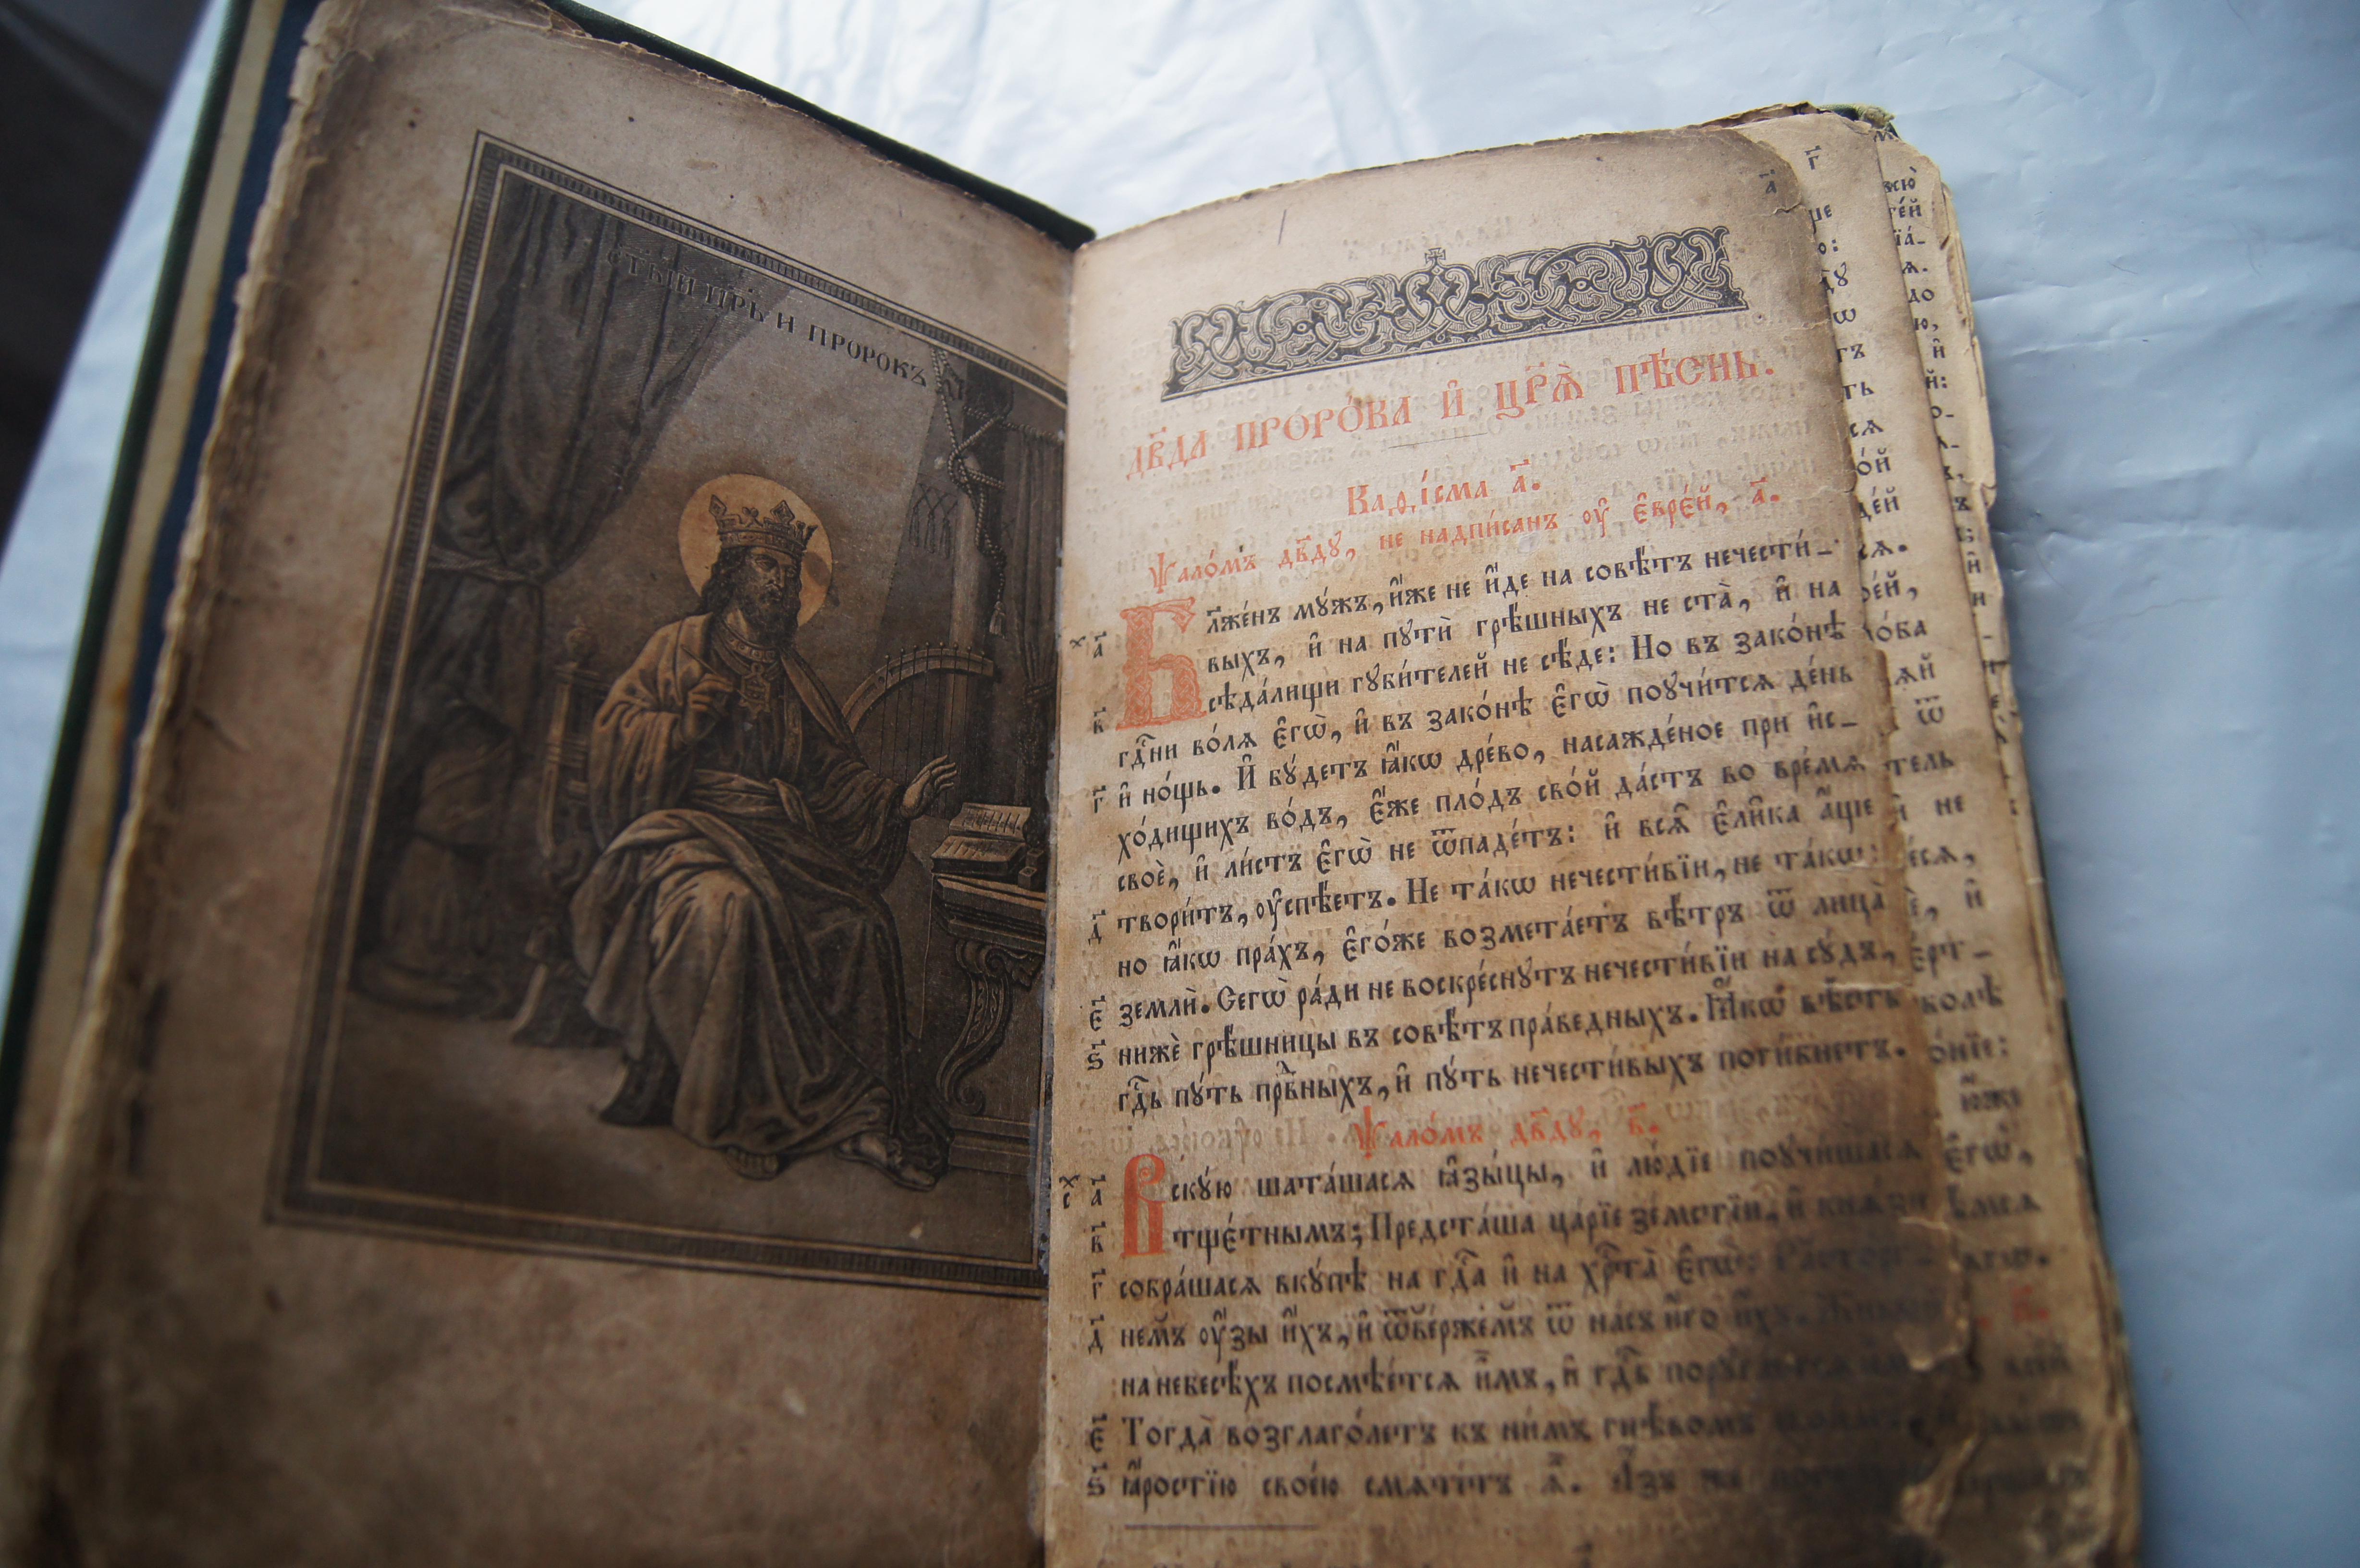 СТЫЙ ЦРЬ И ПРОРОКЪ
а҃
Дв҃да прⷪ҇ро́ка и҆ цр҃ѧ̀ пѣ́снь.
Каѳі́сма а҃.
Ѱало́мъ дв҃ду, не надпи́санъ ᲂу҆ є҆вре́й, а҃.
Бл҃же́нъ мꙋ́жъ, и҆́же не и҆́де на совѣ́тъ нечести́-
выхъ, и҆ на пꙋтѝ грѣ́шныхъ не ста̀, и҆ на
сѣда́лищи гꙋби́телей не сѣ́де: Но въ зако́нѣ
гдⷭ҇ни во́лѧ є҆гѡ̀, и҆ въ зако́нѣ є҆гѡ̀ поꙋчи́тсѧ де́нь
и҆ но́щь. И҆ бꙋ́детъ ꙗ҆́кѡ дре́во, насажде́ное при и҆с-
хо́дищихъ во́дъ, є҆́же пло́дъ сво́й да́стъ во вре́мѧ
своѐ, и҆ ли́стъ є҆гѡ̀ не ѿпаде́тъ: и҆ всѧ̑ є҆ли̑ка а҆́ще
твори́тъ, ᲂу҆спѣ́етъ. Не та́кѡ нечести́вїи, не та́кѡ:
но ꙗ҆́кѡ пра́хъ, є҆го́же возмета́етъ вѣ́тръ ѿ лица̀
землѝ. Сегѡ̀ ра́ди не воскре́снꙋтъ нечести́вїи на сꙋ́дъ,
нижѐ грѣ́шницы въ совѣ́тъ пра́ведныхъ. Ꙗ҆́кѡ вѣ́сть
гдⷭ҇ь пꙋ́ть првⷣныхъ, и҆ пꙋ́ть нечести́выхъ поги́бнетъ.
Ѱало́мъ дв҃дꙋ, в҃.
Вскꙋ́ю шата́шасѧ ꙗ҆зы́цы, и҆ лю́дїе поꙋчи́шасѧ
тщє́тнымъ; Предста́ша ца́рїе зе́мстїи, и҆ кнѧ́зи
собра́шасѧ вкꙋ́пѣ на гдⷭ҇а и҆ на хрⷭ҇та̀ є҆гѡ̀: Расто́рг-
немъ ᲂу҆́зы и҆́хъ, и҆ ѿве́ржемъ ѿ на́съ и҆́го и҆́хъ. Живы́й
на небесѣ́хъ посмѣе́тсѧ и҆̀мъ, и҆ гдⷭ҇ь
Тогда̀ возглаго́летъ къ ни̑мъ гнѣ́вомъ
ꙗ҆́ростїю свое́ю смѧте́тъ ѧ҆̀. А҆́зъ же